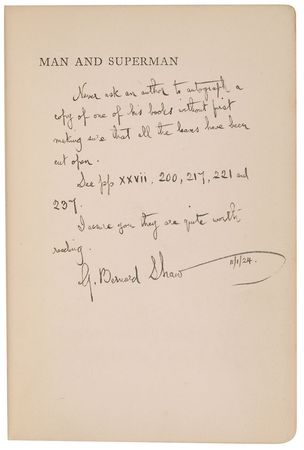 MAN AND SUPERMAN
Never ask an author to autograph a
copy of one of his books without first
making sure that all the leaves have been
cut open.
See pp xxvii, 200, 217, 221 and
237.
I assure you they are quite worth
reading.
G. Bernard Shaw
11/1/24.